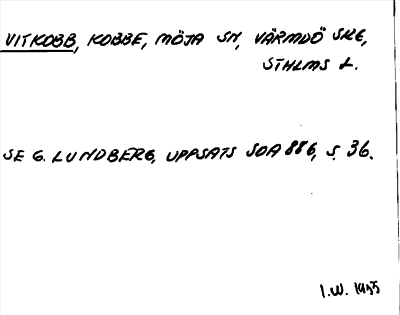 VITKOBB, KOBBE, MÖJA SN, VÄRMDÖ SKG,
STHLMS L.
SE G. LUNDBERG, UPPSATS SOA 886, S. 36.
I.W. 1955